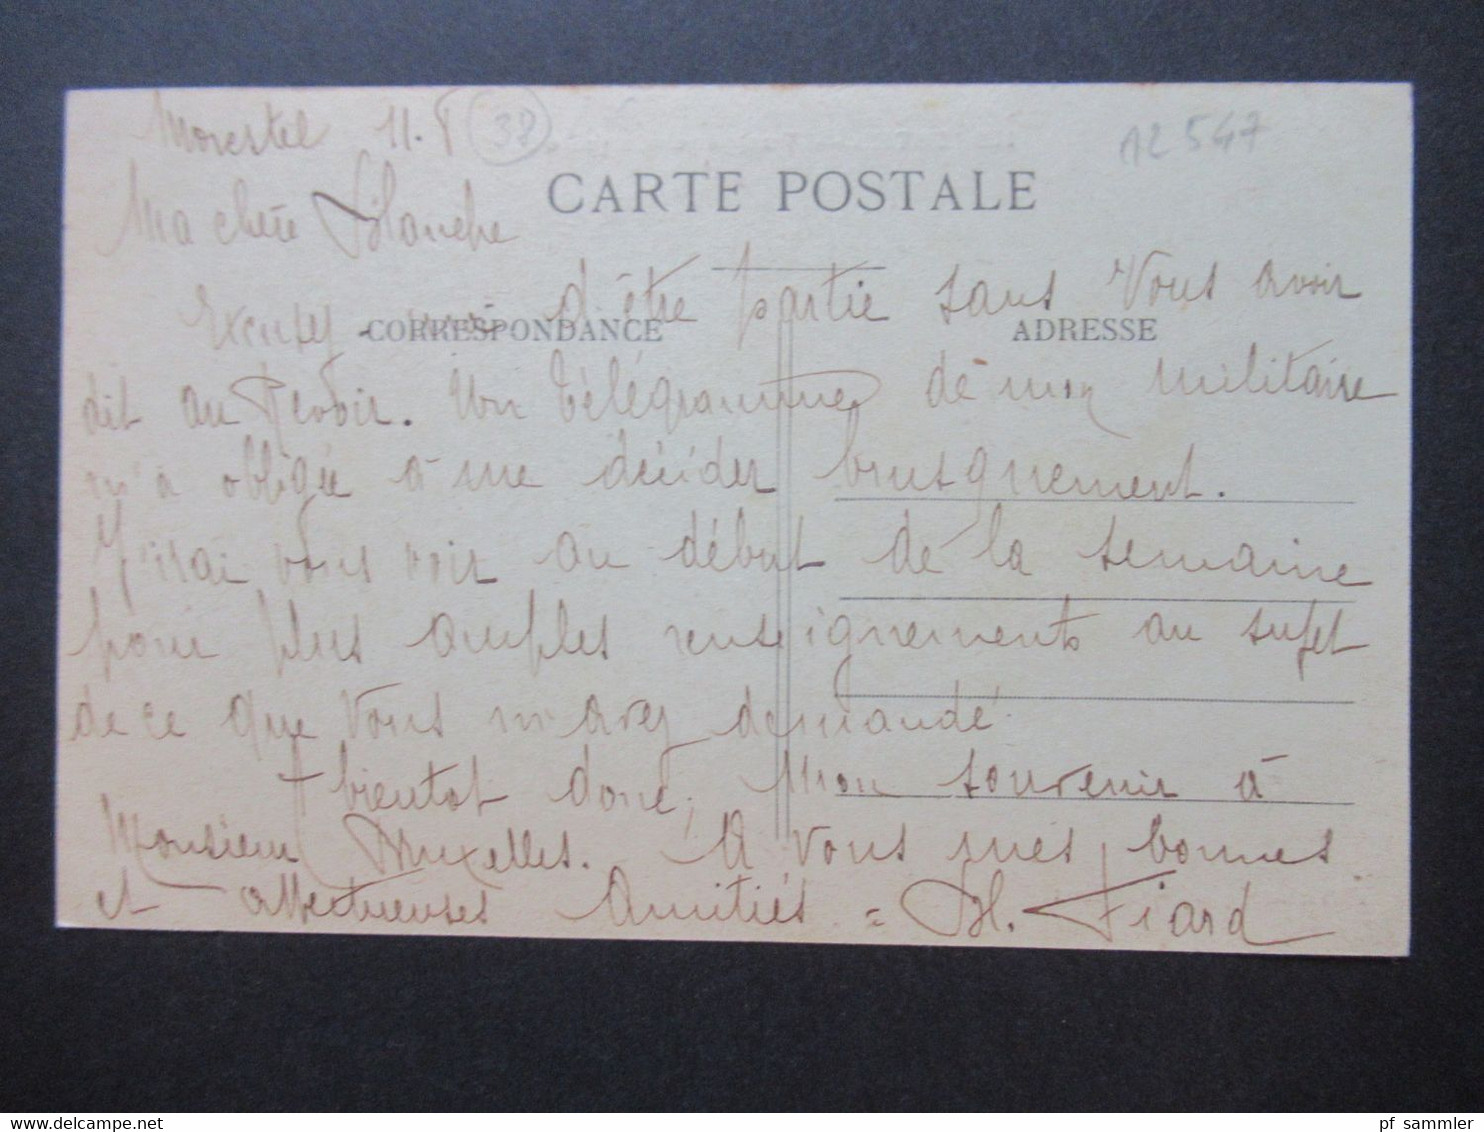 Morestel 11.8 (38)
12547
Ma chère Blanche
CARTE POSTALE
Excusez-moi d'être partie sans vous avoir
CORRESPONDANCE ADRESSE
dit au revoir. Un télégramme de mon militaire
m'a obligée à me décider brusquement.
J'irai vous voir au début de la semaine
pour plus amples renseignements au sujet
de ce que vous m'avez demandé.
A bientôt donc, Mon souvenir à
Monsieur Bruxelles. A vous mes bonnes
et affectueuses Amitiés = H. Fiard
delcampe.net
pf_sammler